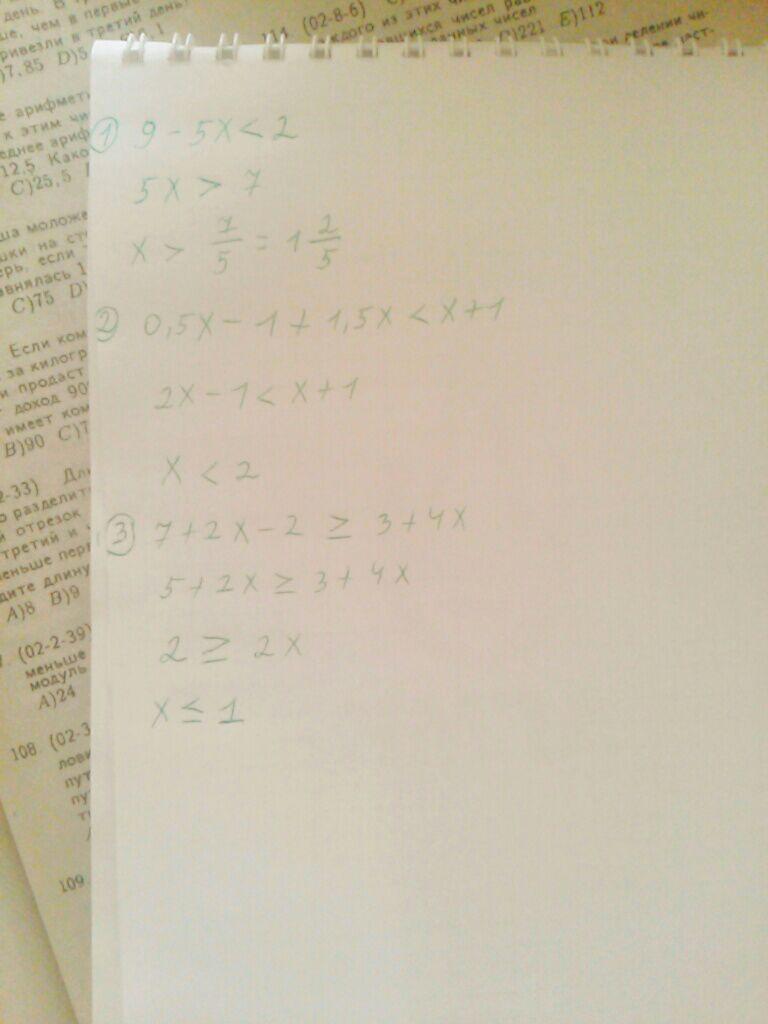 день. В
ше, чем в первые
ривезли в третий день
)7,85 D)5
1
(02-8-6)
каждого из этих
чисел
D)221 E)112
делении чи-
е арифмет
к этим чи
еднее ариф
12,5 Како
C)25,5
ша моложе
шки на ст
рь, если
авнялась 1
C)75 D)
Если ком
за килогр
и продаст
доход 90
имеет ком
B)90 C)7
2-33) Дли
о разделит
й отрезок
третий и
меньше пер
дите длину
A)8 B)9
(02-2-39)
меньше
модуль
A)24
108. (02-3
лови
пут
109.
① 9 - 5x < 2
5x > 7
x > 7/5 = 1 2/5
② 0,5x - 1 + 1,5x < x+1
2x - 1 < x+1
x < 2
③ 7+2x-2 ≥ 3+4x
5+2x ≥ 3+4x
2 ≥ 2x
x ≤ 1